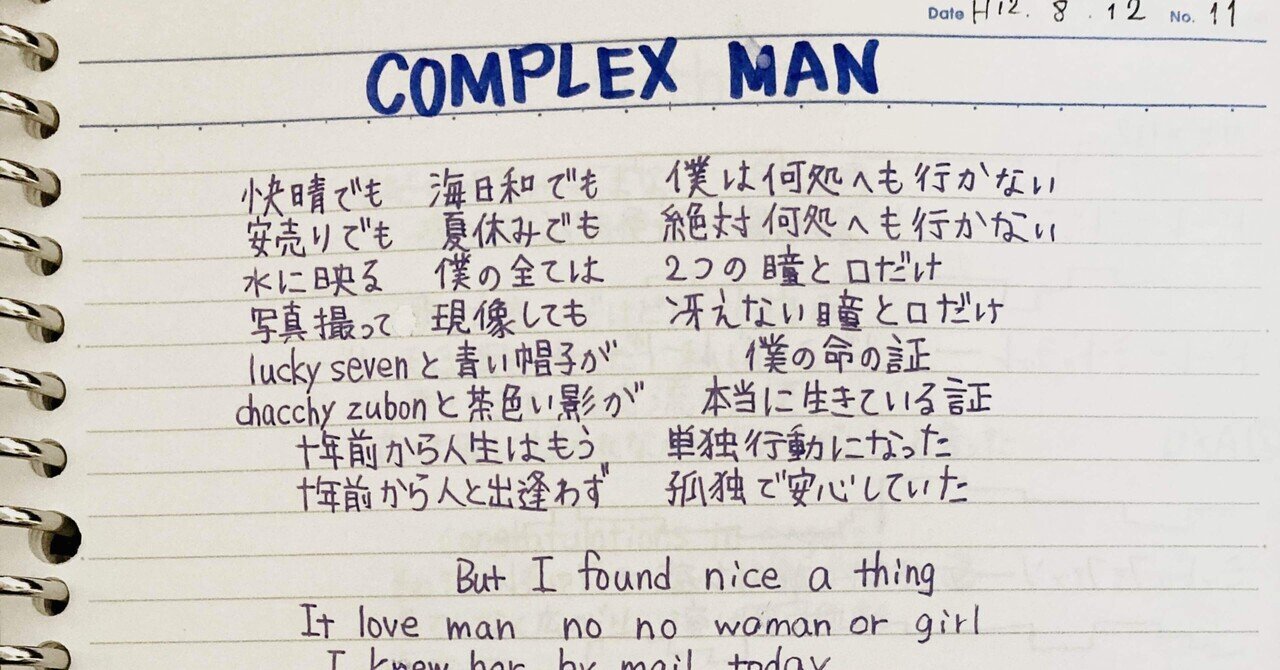 Date H12. 8. 12 No. 11
COMPLEX MAN
快晴でも 海日和でも 僕は何処へも行かない
安売りでも 夏休みでも 絶対何処へも行かない
水に映る 僕の全ては 2つの瞳と口だけ
写真撮って 現像しても 冴えない瞳と口だけ
lucky sevenと青い帽子が 僕の命の証
chacchy zubonと茶色い影が 本当に生きている証
十年前から人生はもう 単独行動になった
十年前から人と出逢わず 孤独で安心していた
But I found nice a thing
It love man no no woman or girl
I knew her by mail today